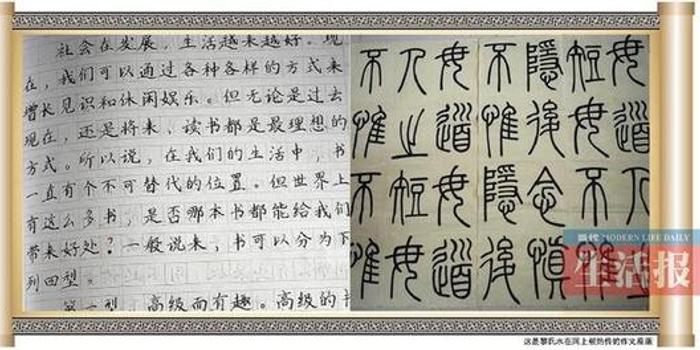 社会在发展，生活越来越好。现
在，我们可以通过各种各样的方式来
增长见识和休闲娱乐。但无论是过去
现在，还是将来，读书都是最理想的
方式。所以说，在我们的生活中，书
一直有个不可替代的位置。但世界上
有这么多书，是否哪本书都能给我们
带来好处？一般说来，书可以分为下
列四型。
第一型，高级而有趣。高级的书
毋道人
短毋不惟
隱後念慎
不惟隱後
毋道毋道
人之短毋
不惟不惟
当代 MODERN LIFE DAILY
生活报
这是黎氏水在网上被热传的作文原版